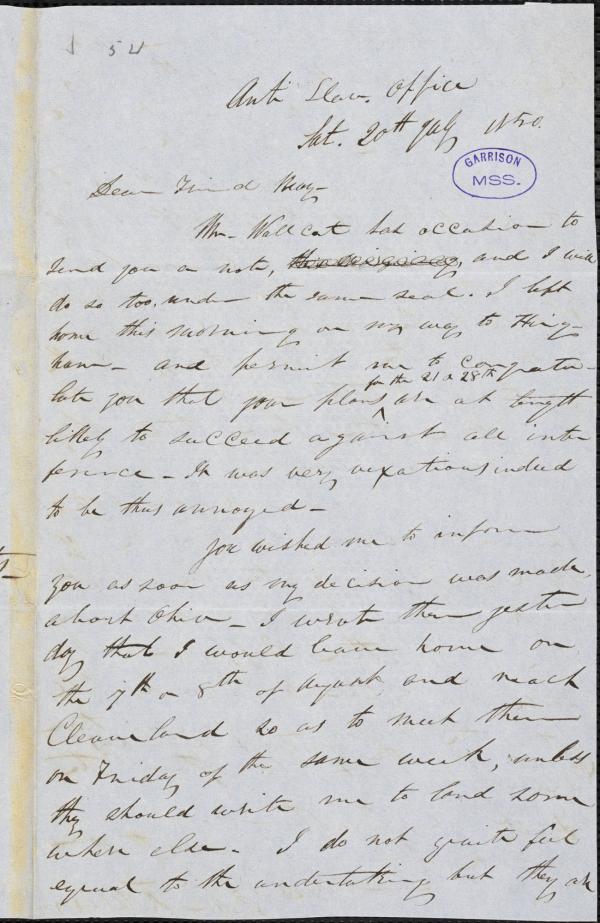 54
Anti Slav. Office
Sat. 20th July 1850.
GARRISON
MSS.
Dear Friend May—
Mr. Wallcut has occasion to
send you a note, and I will
do so too, under the same seal. I left
home this morning on my way to Hing-
ham— and permit me to congratu-
for the 21 & 28th
late you that your plans are at length
likely to succeed against all inter
ference— It was very vexatious indeed
to be thus annoyed—
You wished me to inform
you as soon as my decision was made,
about Ohio— I wrote them yester
day that I would leave home on
the 7th or 8th of August and reach
Cleaveland so as to meet them
on Friday of the same week, unless
they should write me to land some
where else— I do not quite feel
equal to the undertaking but they are